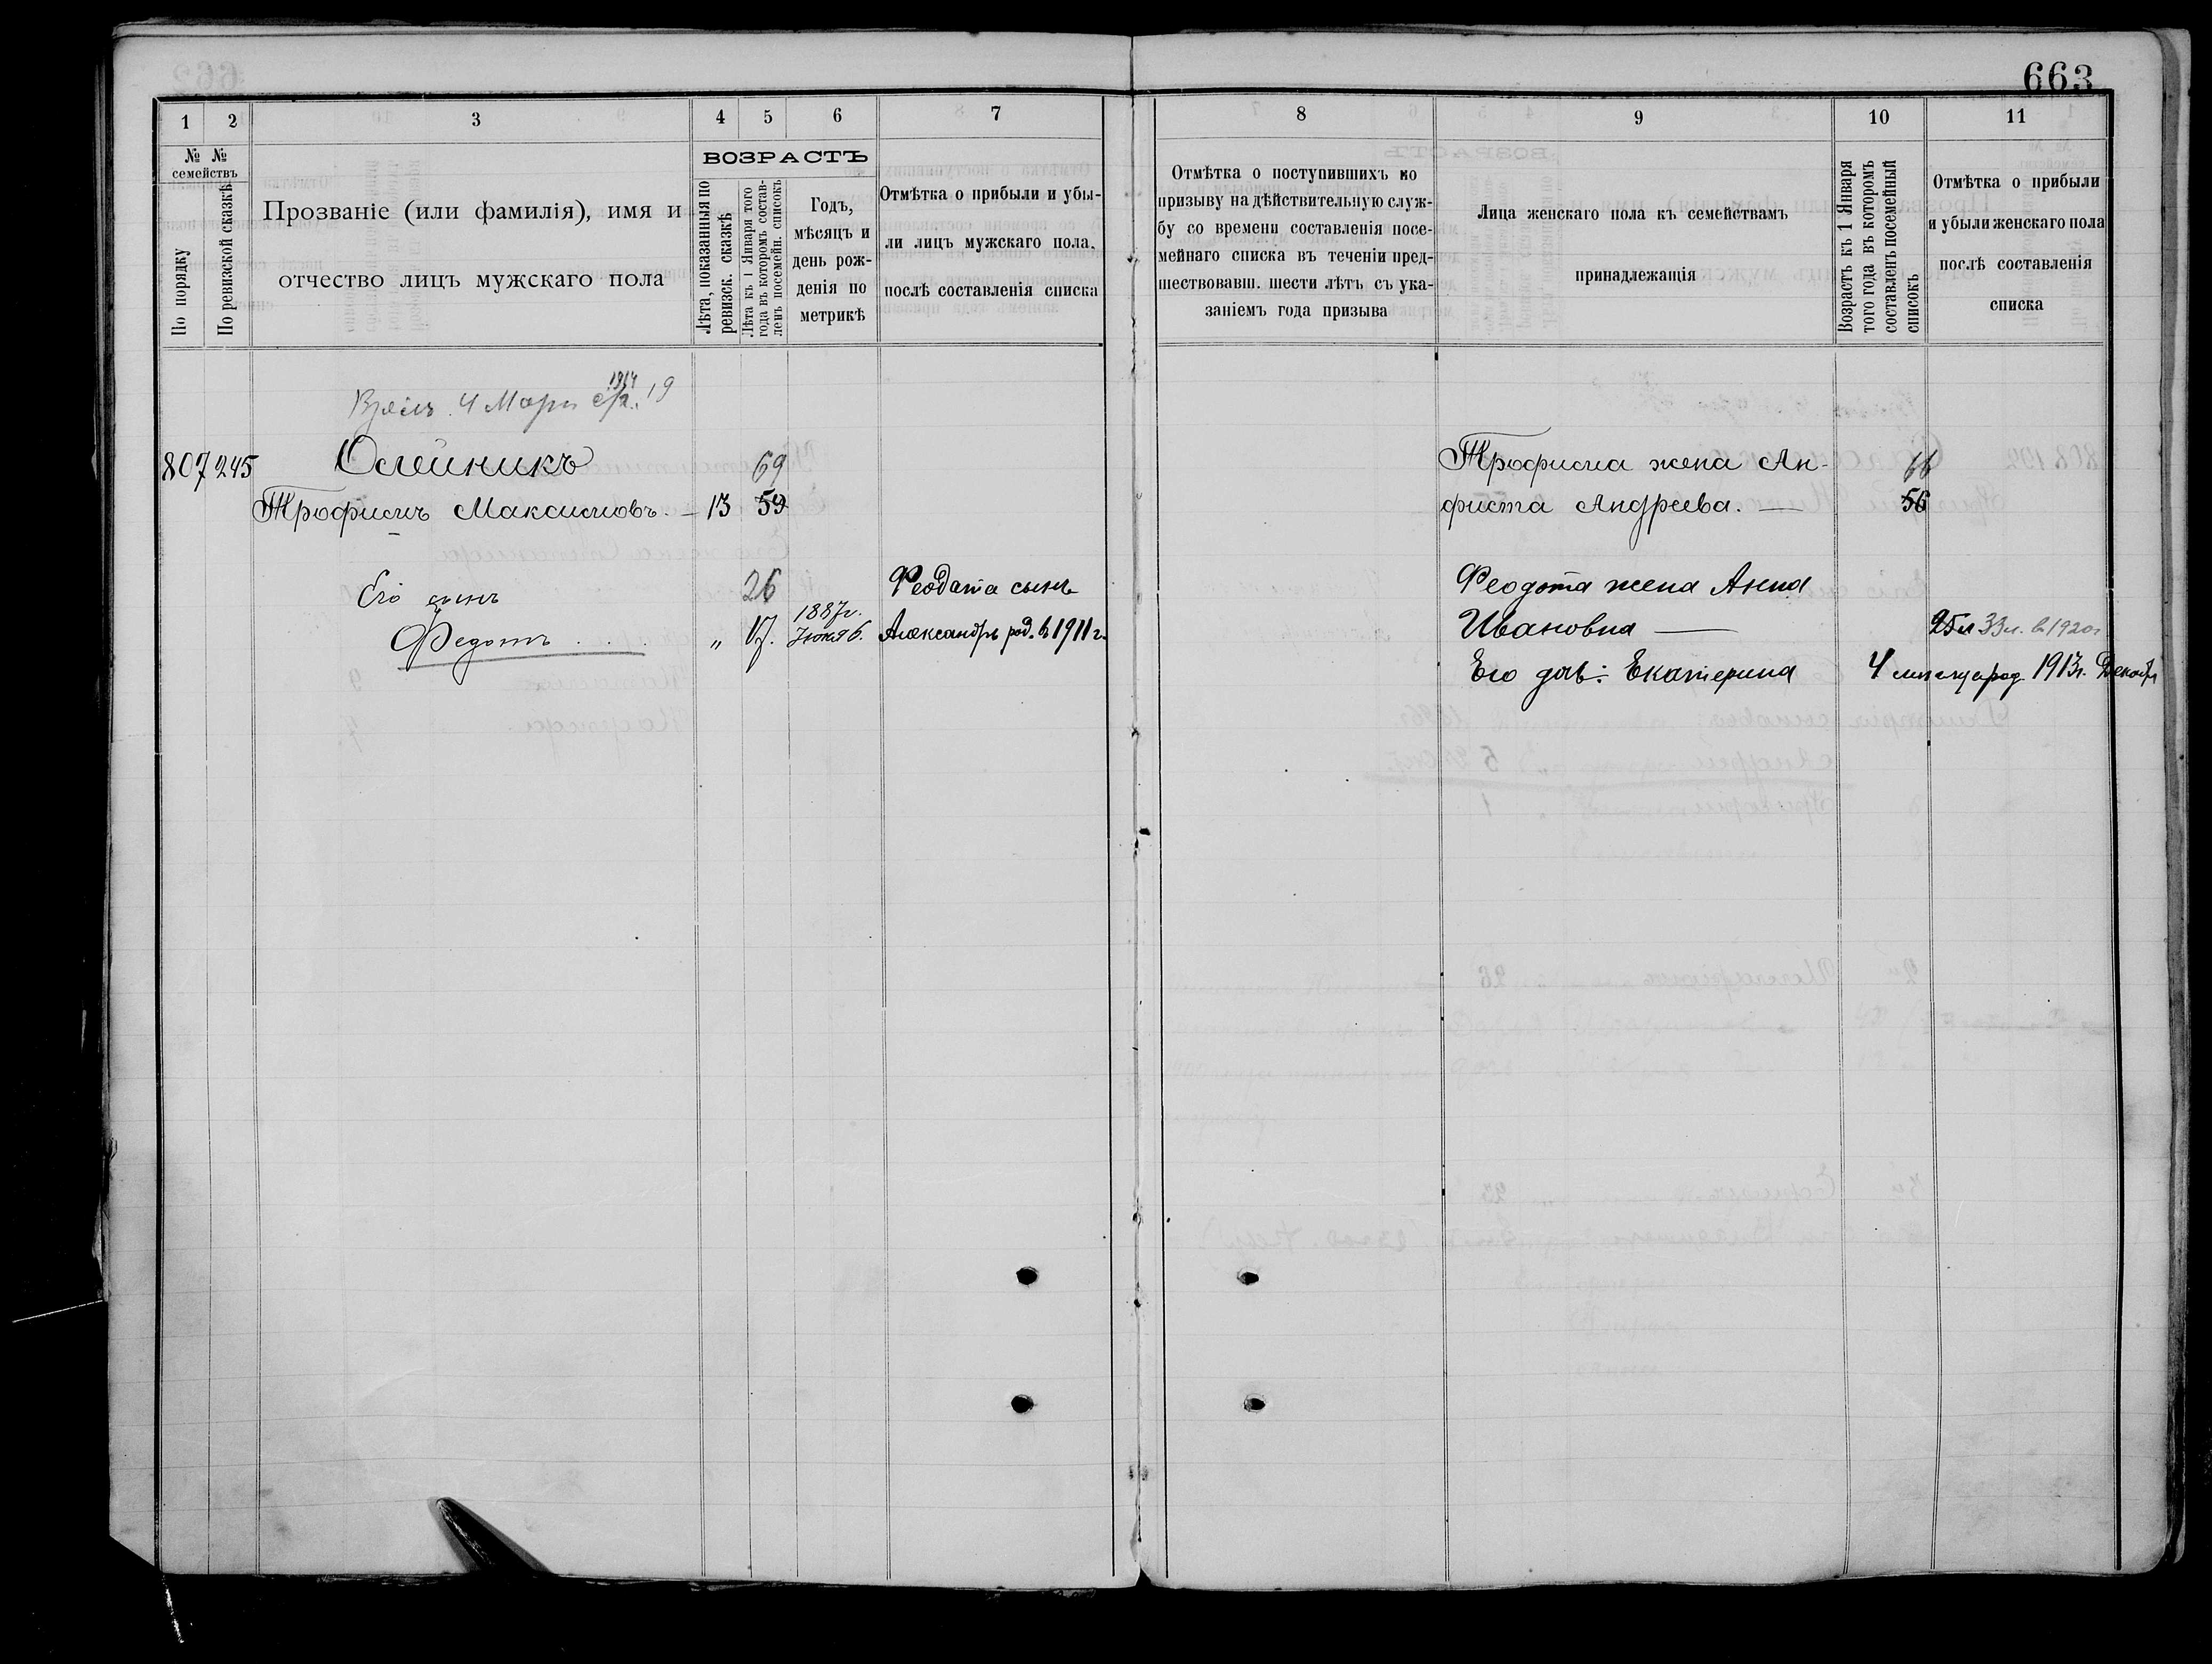 663
1 2 3 4 5 6 7
№ № семействъ
По порядку
По ревизской сказкѣ
Прозваніе (или фамилія), имя и
отчество лицъ мужскаго пола
ВОЗРАСТЪ
Лѣта, показанныя по
ревизск. сказкѣ
Лѣта къ 1 Января того
года въ которомъ состав-
ленъ посемейн. списокъ
Годъ,
мѣсяцъ и
день рож-
денія по
метрикѣ
Отмѣтка о прибыли и убы-
ли лицъ мужскаго пола,
послѣ составленія списка
8 9 10 11
Отмѣтка о поступившихъ по
призыву на дѣйствительную служ-
бу со времени составленія посе-
мейнаго списка въ теченіи пред-
шествовавш. шести лѣтъ съ ука-
заніемъ года призыва
Лица женскаго пола къ семействамъ
принадлежащія
Возрастъ къ 1 Января
того года въ которомъ
составленъ посемейный
списокъ
Отмѣтка о прибыли
и убыли женскаго пола
послѣ составленія
списка
1914
4 Мар 19
807 245 Олейникъ 69
Трофимъ Максимовъ. — 13 59
Его сынъ 26
Федотъ . . „ 17. 1887г. Іюня 6.
Феодота сынъ
Александръ род. в 1911 г.
Трофима жена Ан- 66
фиста Андреева. — 56
Феодота жена Анна
Ивановна — 25 л 33 л. в 1920 г
Его дочь: Екатерина 4 месяца род. 1913 г. Декабр